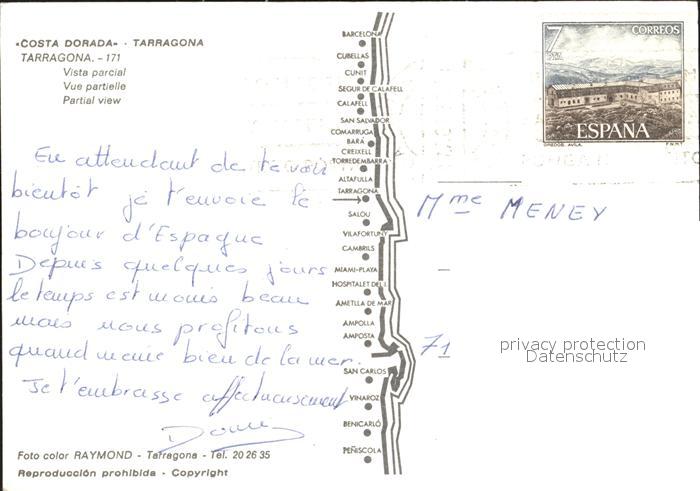 «COSTA DORADA» - TARRAGONA
TARRAGONA. - 171
Vista parcial
Vue partielle
Partial view
En attendant de te voir
bientôt je t'envoie le
bonjour d'Espagne
Depuis quelques jours
le temps est moins beau
mais nous profitons
quand même bien de la mer.
Je t'embrasse affectueusement
Foto color RAYMOND - Tarragona - Tel. 20 26 35
Reproducción prohibida - Copyright
BARCELONA
CUBELLAS
CUNIT
SEGUR DE CALAFELL
CALAFELL
SAN SALVADOR
COMARRUGA
BARÁ
CREIXELL
TORREDEMBARRA
ALTAFULLA
TARRAGONA
SALOU
VILAFORTUNY
CAMBRILS
MIAMI-PLAYA
HOSPITALET DEL I.
AMETLLA DE MAR
AMPOLLA
AMPOSTA
SAN CARLOS
VINAROZ
BENICARLÓ
PEÑISCOLA
7 PTAS
CORREOS
ESPAÑA
GREDOS. AVILA.
F.N.M.T.
Mme MENEY
71
privacy protection
Datenschutz